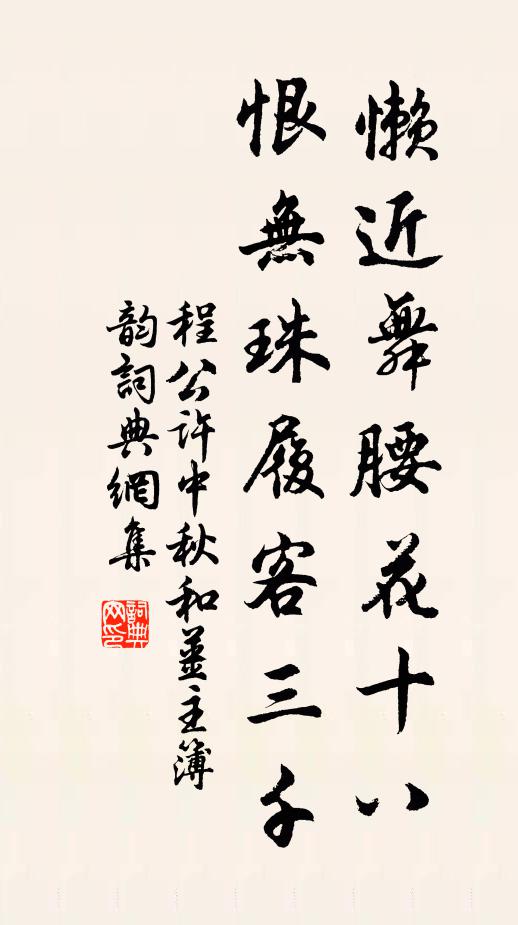 懶近舞腰花十八
恨無珠履客三千
程公許中秋和薑主簿
韵詞典網集
詞典網印